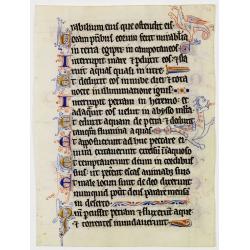 rabilium eius que ostendit eis
Coram patribus eorum fecit mirabilia
in terra egipti in campo taneos
Interrupit mare et perduxit eos et sta
tuit aquas quasi in utre
Et deduxit eos in nube diei et tota
nocte in illuminatione ignis
Interrupit petram in heremo et
adaquavit eos velut in abysso multa
Et eduxit aquam de petra et deduxit
tanquam flumina aquas
Et apposuerunt adhuc peccare ei
in iram excitaverunt excelsum in inaquoso
Et temptaverunt deum in cordibus
suis ut peterent escas animabus suis
Et male locuti sunt de deo dixerunt
nunquid poterit deus parare mensam
in deserto
Quoniam percussit petram et fluxerunt aque
et torrentes inundaverunt